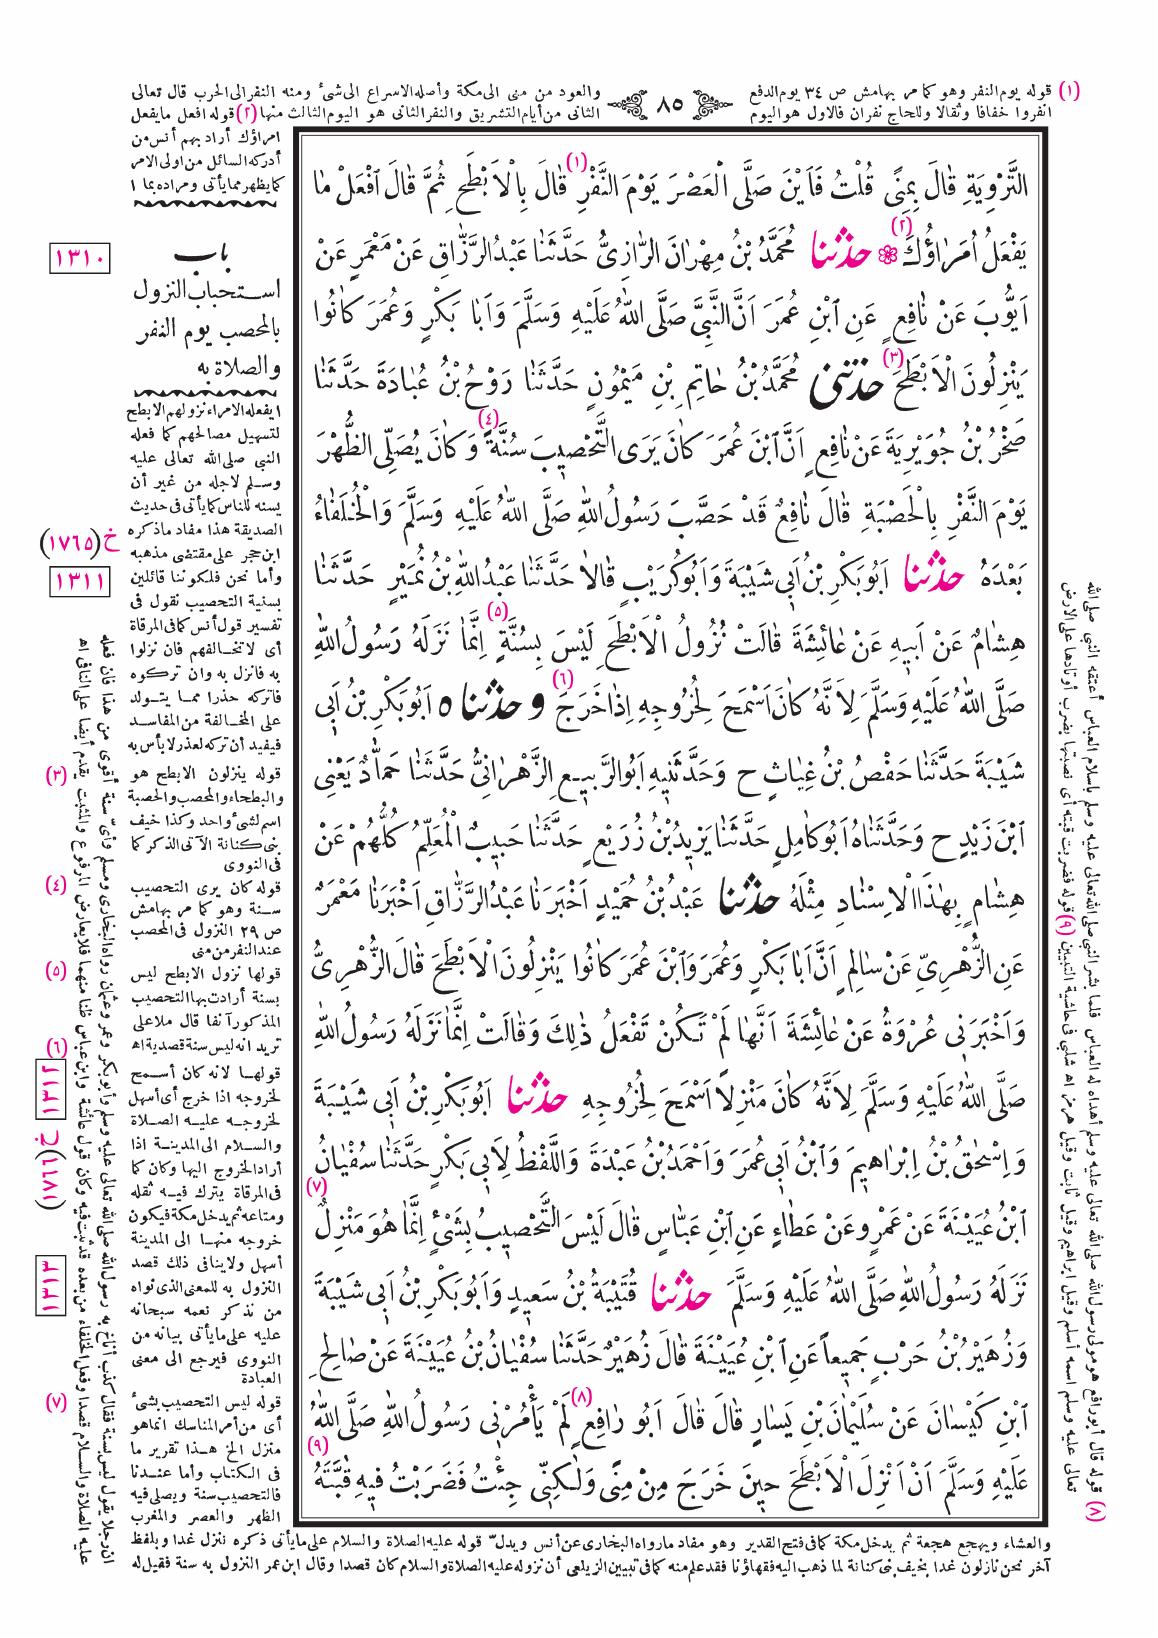 (١) قوله يوم النفر وهو كما مر بهامش ص ٣٤ يوم الدفع
انفروا خفافا وثقالا وللحاج نفران فالاول هو اليوم
٨٥
والعود من منى الى مكة وأصله الاسراع الى شىء ومنه النفر الى الحرب قال تعالى
الثانى من أيام التشريق والنفر الثانى هو اليوم الثالث منها (٢) قوله افعل مايفعل
امراؤك أراد بهم أنس من
أدركه السائل من اولى الامر
كما يظهر مما يأتى ومراده بما ١
التَّرْوِيَةِ قَالَ بِمِنًى قُلْتُ فَاَيْنَ صَلَّى الْعَصْرَ يَوْمَ النَّفْرِ (١) قَالَ بِالْاَبْطَحِ ثُمَّ قَالَ اَفْعَلْ مَا
يَفْعَلُ اُمَرَاؤُكَ (٢) حدثنا مُحَمَّدُ بْنُ مِهْرَانَ الرَّازِىُّ حَدَّثَنَا عَبْدُ الرَّزَّاقِ عَنْ مَعْمَرٍ عَنْ
اَيُّوبَ عَنْ نَافِعٍ عَنِ ابْنِ عُمَرَ اَنَّ النَّبِىَّ صَلَّى اللهُ عَلَيْهِ وَسَلَّمَ وَاَبَا بَكْرٍ وَعُمَرَ كَانُوا
يَنْزِلُونَ الْاَبْطَحَ (٣) حدثنى مُحَمَّدُ بْنُ حَاتِمِ بْنِ مَيْمُونٍ حَدَّثَنَا رَوْحُ بْنُ عُبَادَةَ حَدَّثَنَا
صَخْرُ بْنُ جُوَيْرِيَةَ عَنْ نَافِعٍ اَنَّ ابْنَ عُمَرَ كَانَ يَرَى التَّحْصِيبَ سُنَّةً (٤) وَكَانَ يُصَلِّى الظُّهْرَ
يَوْمَ النَّفْرِ بِالْحَصْبَةِ قَالَ نَافِعٌ قَدْ حَصَّبَ رَسُولُ اللهِ صَلَّى اللهُ عَلَيْهِ وَسَلَّمَ وَالْخُلَفَاءُ
بَعْدَهُ حدثنا اَبُو بَكْرِ بْنُ اَبِى شَيْبَةَ وَاَبُو كُرَيْبٍ قَالَا حَدَّثَنَا عَبْدُ اللهِ بْنُ نُمَيْرٍ حَدَّثَنَا
هِشَامٌ عَنْ اَبِيهِ عَنْ عَائِشَةَ قَالَتْ نُزُولُ الْاَبْطَحِ لَيْسَ بِسُنَّةٍ (٥) اِنَّمَا نَزَلَهُ رَسُولُ اللهِ
صَلَّى اللهُ عَلَيْهِ وَسَلَّمَ لِاَنَّهُ كَانَ اَسْمَحَ لِخُرُوجِهِ اِذَا خَرَجَ (٦) وحدثناه اَبُو بَكْرِ بْنُ اَبِى
شَيْبَةَ حَدَّثَنَا حَفْصُ بْنُ غِيَاثٍ ح وَحَدَّثَنِيهِ اَبُو الرَّبِيعِ الزَّهْرَانِىُّ حَدَّثَنَا حَمَّادٌ يَعْنِى
ابْنَ زَيْدٍ ح وَحَدَّثَنَاهُ اَبُو كَامِلٍ حَدَّثَنَا يَزِيدُ بْنُ زُرَيْعٍ حَدَّثَنَا حَبِيبٌ الْمُعَلِّمُ كُلُّهُمْ عَنْ
هِشَامٍ بِهٰذَا الْاِسْنَادِ مِثْلَهُ حدثنا عَبْدُ بْنُ حُمَيْدٍ اَخْبَرَنَا عَبْدُ الرَّزَّاقِ اَخْبَرَنَا مَعْمَرٌ
عَنِ الزُّهْرِىِّ عَنْ سَالِمٍ اَنَّ اَبَا بَكْرٍ وَعُمَرَ وَابْنَ عُمَرَ كَانُوا يَنْزِلُونَ الْاَبْطَحَ قَالَ الزُّهْرِىُّ
وَاَخْبَرَنِى عُرْوَةُ عَنْ عَائِشَةَ اَنَّهَا لَمْ تَكُنْ تَفْعَلُ ذٰلِكَ وَقَالَتْ اِنَّمَا نَزَلَهُ رَسُولُ اللهِ
صَلَّى اللهُ عَلَيْهِ وَسَلَّمَ لِاَنَّهُ كَانَ مَنْزِلًا اَسْمَحَ لِخُرُوجِهِ حدثنا اَبُو بَكْرِ بْنُ اَبِى شَيْبَةَ
وَاِسْحٰقُ بْنُ اِبْرَاهِيمَ وَابْنُ اَبِى عُمَرَ وَاَحْمَدُ بْنُ عَبْدَةَ وَاللَّفْظُ لِاَبِى بَكْرٍ حَدَّثَنَا سُفْيَانُ
ابْنُ عُيَيْنَةَ عَنْ عَمْرٍو عَنْ عَطَاءٍ عَنِ ابْنِ عَبَّاسٍ قَالَ لَيْسَ التَّحْصِيبُ بِشَىْءٍ (٧) اِنَّمَا هُوَ مَنْزِلٌ
نَزَلَهُ رَسُولُ اللهِ صَلَّى اللهُ عَلَيْهِ وَسَلَّمَ حدثنا قُتَيْبَةُ بْنُ سَعِيدٍ وَاَبُو بَكْرِ بْنُ اَبِى شَيْبَةَ
وَزُهَيْرُ بْنُ حَرْبٍ جَمِيعاً عَنِ ابْنِ عُيَيْنَةَ قَالَ زُهَيْرٌ حَدَّثَنَا سُفْيَانُ بْنُ عُيَيْنَةَ عَنْ صَالِحِ
ابْنِ كَيْسَانَ عَنْ سُلَيْمَانَ بْنِ يَسَارٍ قَالَ قَالَ اَبُو رَافِعٍ (٨) لَمْ يَأْمُرْنِى رَسُولُ اللهِ صَلَّى اللهُ
عَلَيْهِ وَسَلَّمَ اَنْ اَنْزِلَ الْاَبْطَحَ حِينَ خَرَجَ مِنْ مِنًى وَلٰكِنِّى جِئْتُ فَضَرَبْتُ فِيهِ قُبَّتَهُ (٩)
١٣١٠
باب
استحباب النزول
بالمحصب يوم النفر
والصلاة به
١ يفعله الامراء نزولهم الابطح
لتسهيل مصالحهم كما فعله
النبى صلى الله تعالى عليه
وسلم لاجله من غير أن
يسنه للناس كما يأتى فى حديث
الصديقة هذا مفاد ماذكره
ابن حجر على مقتضى مذهبه
وأما نحن فلكوننا قائلين
بسنية التحصيب نقول فى
تفسير قول أنس كما فى المرقاة
أى لا تخالفهم فان نزلوا
به فانزل به وان تركوه
فاتركه حذرا مما يتولد
على المخالفة من المفاسد
فيفيد أن تركه لعذر لا بأس به
خ (١٧٦٥)
١٣١١
(٣) قوله ينزلون الابطح هو
والبطحاء والمحصب والحصبة
اسم لشىء واحد وكذا خيف
بنى كنانة الآتى الذكر كما
فى النووى
(٤) قوله كان يرى التحصيب
سنة وهو كما مر بهامش
ص ٢٩ النزول فى المحصب
عند النفر من منى
(٥) قولها نزول الابطح ليس
بسنة أرادت بها التحصيب
المذكور آنفا قال ملا على
تريد انه ليس سنة قصدية اه
(٦) قولها لانه كان أسمح
لخروجه اذا خرج أى أسهل
لخروجه عليه الصلاة
والسلام الى المدينة اذا
أراد الخروج اليها وكان كما
فى المرقاة يترك فيه ثقله
ومتاعه ثم يدخل مكة فيكون
خروجه منها الى المدينة
أسهل ولا ينافى ذلك قصد
النزول به للمعنى الذى نواه
من تذكر نعمه سبحانه
عليه على ما يأتى بيانه من
النووى فيرجع الى معنى
العبادة
١٣١٢
خ (١٧٦٦)
١٣١٣
(٧) قوله ليس التحصيب بشىء
أى من أمر المناسك انما هو
منزل الخ هذا تقرير ما
فى الكتاب وأما عندنا
فالتحصيب سنة ويصلى فيه
الظهر والعصر والمغرب
والعشاء ويهجع هجعة ثم يدخل مكة كما فى فتح القدير وهو مفاد مارواه البخارى عن أنس ويدل قوله عليه الصلاة والسلام على مايأتى ذكره ننزل غدا وبلفظ
آخر نحن نازلون غدا بخيف بنى كنانة لما ذهب اليه فقهاؤنا فقد علم منه كما فى تبيين الزيلعى أن نزوله عليه الصلاة والسلام كان قصدا وقال ابن عمر النزول به سنة فقيل له
ان رجلا يقول ليس سنة فقال كذب أناخ به رسول الله صلى الله تعالى عليه وسلم وأبو بكر وعمر وعثمان رواه البخارى ومسلم وأىّ سنة أقوى من هذا فان فعله
عليه الصلاة والسلام قصدا وفعل الخلفاء من بعده قد ثبت فيه وكان قول عائشة وابن عباس ظنا منهما فلا يعارض المرفوع والمثبت يقدم أيضا على النافى اه
(٨) قوله قال أبو رافع هو مولى رسول الله صلى الله تعالى عليه وسلم أهداه له العباس فلما بشر النبى صلى الله تعالى عليه وسلم باسلام العباس أعتقه النبى صلى الله
تعالى عليه وسلم اسمه أسلم وقيل ابراهيم وقيل ثابت وقيل هرمز اه شلبى فى حاشية التبيين (٩) قوله فضربت قبته أى نصبتها بضرب أوتادها على الارض